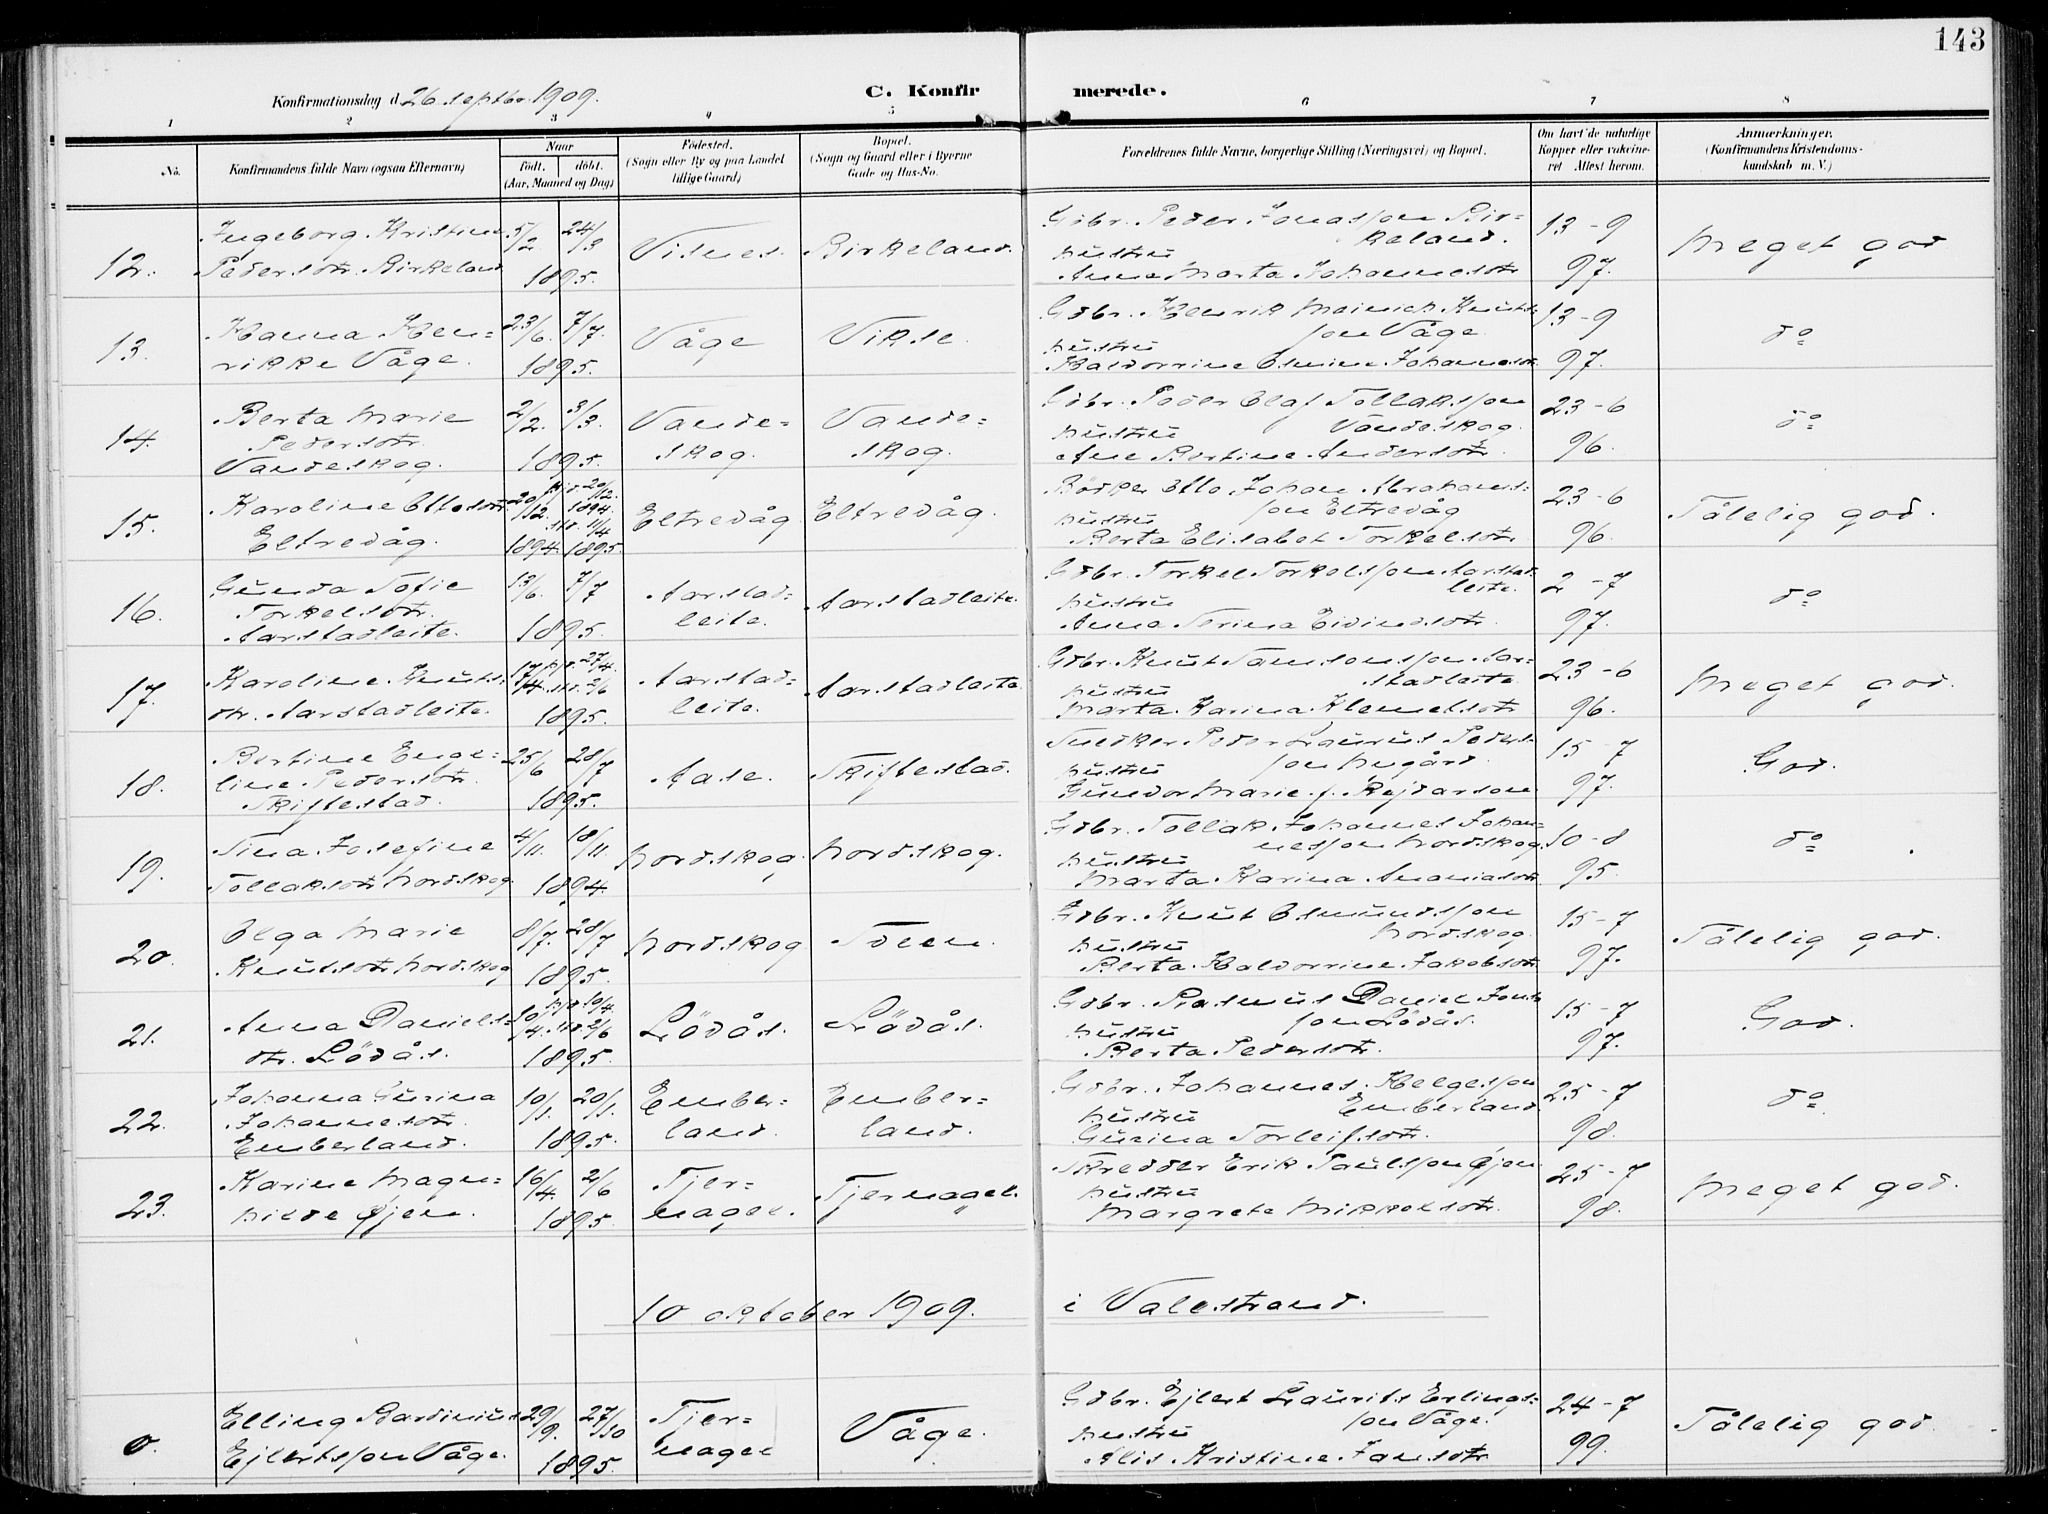 143
Konfirmationsdag d. 26 septbr. 1909.
C. Konfirmerede.
1 2 3 4 5 6 7 8
No.
Konfirmandens fulde Navn (ogsaa Efternavn)
Naar
født. døbt.
(Aar, Maaned og Dag)
Fødested.
(Sogn eller By og paa Landet
tillige Gaard)
Bopæl.
(Sogn og Gaard eller i Byerne
Gade og Hus-No.
Forældrenes fulde Navne, borgerlige Stilling (Næringsvei) og Bopæl.
Om havt de naturlige
Kopper eller vakcine-
ret Attest herom.
Anmærkninger.
(Konfirmandens Kristendoms-
kundskab m. V.)
12.
Ingeborg Kristine
Pedersdtr. Birkeland
5/2 24/3
1895.
Visnes.
Birkeland.
Gdbr. Peder Jonassøn Bir-
keland.
hustru
Anna Marta Johannesdtr
13-9
97.
Meget god
13.
Hanna Hen-
rikke Våge.
23/6. 7/7
1895.
Våge
Vikse.
Gdbr. Henrik Meinich Knuts-
søn Våge
hustru
Haldorrine Osmine Johannesdtr.
13-9
97.
do
14.
Berta Marie
Pedersdtr.
Vandeskog.
2/2. 3/3.
1895.
Vande-
skog.
Vande-
skog.
Gdbr. Peder Olaf Tollakssøn
Vandeskog.
hustru
Ane Bertine Andersdtr.
23-6
96.
do
15.
Karoline Ottosdtr
Eltrevåg.
20/12. hjd. 20/12.
1894.
std. 11/4
1894. 1895.
Eltrevåg
Eltrevåg.
Bödker Otto Johan Abrahams-
søn Eltrevåg
hustru
Berta Elisabet Torkelsdtr.
23-6
96.
Tålelig god.
16.
Gunda Sofie
Torkelsdtr.
Aarstadleite.
13/6. 7/7
1895.
Aarstad-
leite.
Aarstadleite.
Gdbr. Torkel Torkelssøn Aarstad-
leite.
hustru
Anna Serina Eivindsdtr.
2-7
97.
do
17.
Karoline Knuts-
dtr. Aarstadleite.
17/4. hjd. 27/4.
std. 2/6
1895.
Aarstad-
leite.
Aarstadleite
Gdbr. Knut Samsonssøn Aar-
stadleite
hustru
Marta Karina Klemetsdtr
23-6
96.
Meget god.
18.
Bertine Enge-
line Pedersdtr.
Skiftestad.
25/6 28/7
1895.
Aase.
Skiftestad.
Snedker Peder Laurus Peders-
søn Nygård.
hustru
Gundor Marie f. Rejdarson
15-7
97.
God.
19.
Sina Josefine
Tollaksdtr Nordskog
4/11. 18/11.
1894.
Nordskog.
Nordskog.
Gdbr. Tollak Johannes Johan-
nessøn Nordskog
hustru
Marta Karina Ananiasdtr.
10-8
95.
do
20.
Olga Marie
Knutsdtr Nordskog
8/7. 28/7
1895.
Nordskog
Gdbr. Knut Osmundssøn
Nordskog
hustru
Berta Haldorrine Jakobsdtr.
15-7
97.
Tålelig god.
21.
Anna Daniels-
dtr. Lödås.
10/4. hjd. 10/4.
std. 2/6
1895.
Lödås.
Lödås.
Gdbr. Rasmus Daniel Jons-
søn Lödås.
hustru
Berta Pedersdtr.
15-7
97.
God.
22.
Johanna Gurina
Johannesdtr.
Emberland.
10/1. 20/1.
1895.
Ember-
land.
Ember-
land.
Gdbr. Johannes Helgessøn
Emberland
hustru
Gurina Torleifsdtr.
25-7
98.
do
23.
Karine Magn-
hilde Øjen.
16/4. 2/6
1895.
Tjer-
nagel.
Tjernagel.
Skredder Erik Paulssøn Øjen
hustru
Margrete Mikkelsdtr.
25-7
98.
Meget god.
10 oktober 1909. i Valestrand.
0.
Elling Bardinius
Ejlertssøn Våge.
29/9. 27/10
1895.
Tjer-
nagel
Våge.
Gdbr. Ejlert Laurits Erlings-
søn Våge.
hustru
Alis Kristine Jansdtr
24-7
99.
Tålelig god.